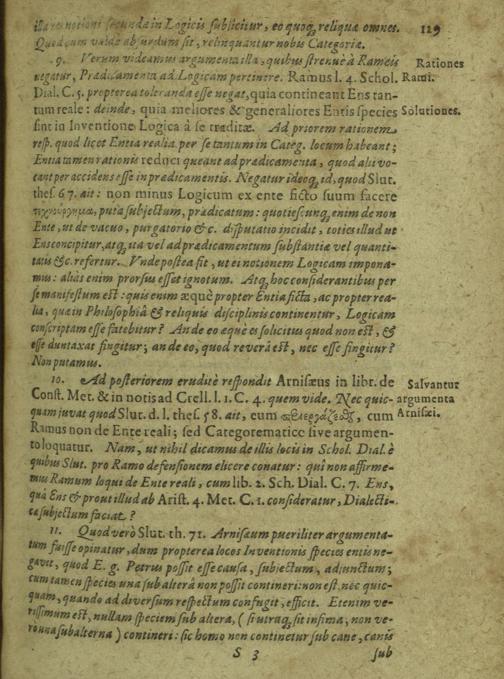 129
illæ res notioni secundæ in Logicis subiicitur, eo quoq; reliquæ omnes.
Quod cum valde absurdum sit, relinquantur nobis Categoriæ.
9. Verum videamus argumenta illa, quibus strenuè à Rameis
Rationes
negatur, Prædicamenta ad Logicam pertinere. Ramus l. 4. Schol.
Rami.
Dial. C. 5. propterea toleranda esse negat, quia contineant Ens tan-
tum reale: deinde, quia meliores & generaliores Entis species
Solutiones.
sint in Inventione Logica à se traditæ. Ad priorem rationem
resp. quod licet Entia realia per se tantum in Categ. locum habeant;
Entia tamen rationis reduci queant ad prædicamenta, quod alii vo-
cant per accidens esse in prædicamentis. Negatur ideoq; id, quod Slut.
thes. 67. ait: non minus Logicum ex ente ficto suum facere
puta subjectum, prædicatum: quotiescunq; enim de non
Ente, ut de vacuo, purgatorio &c. disputatio incidit, toties illud ut
Ens concipitur, atq; ita vel ad prædicamentum substantiæ vel quanti-
tatis &c. refertur. Unde postea fit, ut ei notionem Logicam impona-
mus: aliàs enim prorsus esset ignotum. Atq; hoc considerantibus per
se manifestum est: quis enim æquè propter Entia ficta, ac propter rea-
lia, quæ in Philosophiâ & reliquis disciplinis continentur, Logicam
conscriptam esse fatebitur? An de eo æquè es solicitus quod non est, &
esse duntaxat fingitur; an de eo, quod reverâ est, nec esse fingitur?
Non putamus.
10. Ad posteriorem eruditè respondit Arnisæus in libr. de
Salvantur
Const. Met. & in notis ad Crell. l. 1. C. 4. quem vide. Nec quic-
argumenta
quam juvat quod Slut. d. l. thes. 58. ait, eum περιεργάζεσθαι, cum
Arnisæi.
Ramus non de Ente reali; sed Categorematicc sive argumen-
to loquatur. Nam, ut nihil dicamus de illis locis in Schol. Dial. è
quibus Slut. pro Ramo defensionem elicere conatur: quî non affirme-
mus Ramum loqui de Ente reali, cum lib. 2. Sch. Dial. C. 7. Ens,
quà Ens & prout illud ab Arist. 4. Met. C. 1. consideratur, Dialecti-
cæ subjectum faciat?
11. Quod verò Slut. th. 71. Arnisæum pueriliter argumenta-
tum fuisse opinatur, dum propterea locos Inventionis species entis ne-
gavit, quod E. g. Petrus possit esse causa, subjectum, adjunctum;
cum tamen species una sub alterâ non possit contineri: non est, nec quic-
quam, quando ad diversum respectum confugit, efficit. Etenim ve-
rissimum est, nullam speciem sub altera, (si utraq; sit infima, non ve-
rò una subalterna) contineri: sic homo non continetur sub cane, canis
S 3 sub